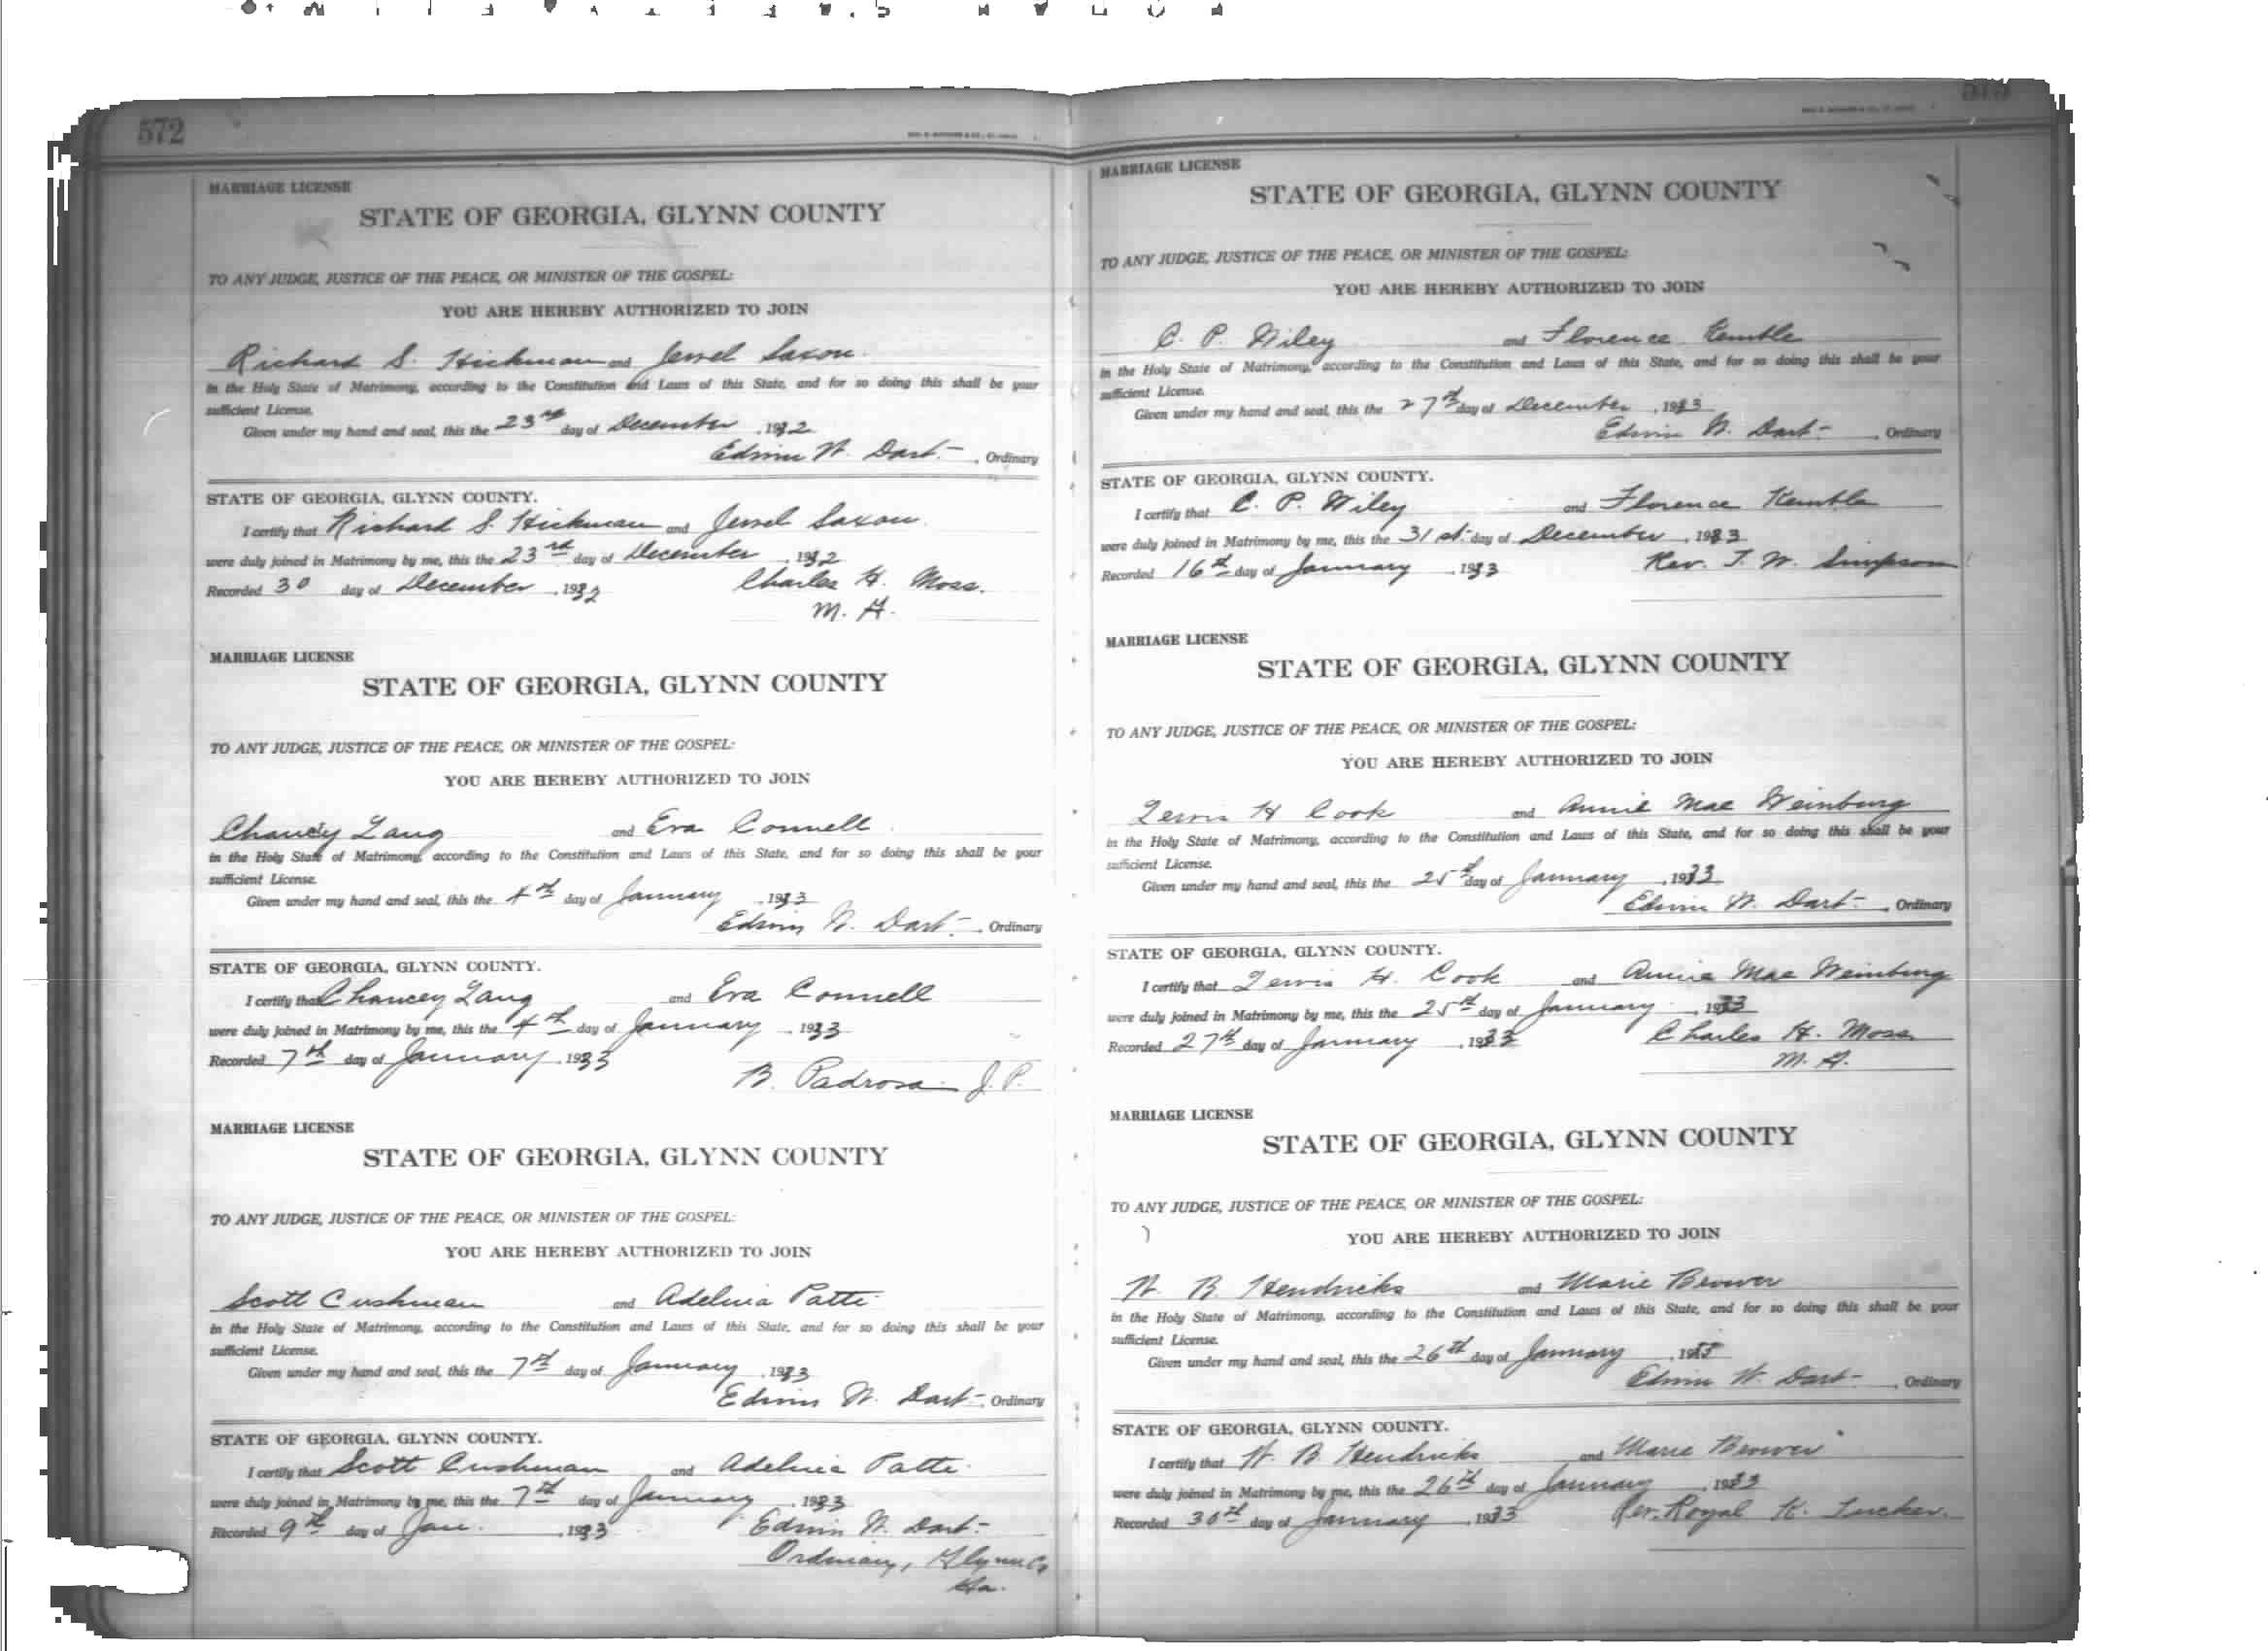 572
MARRIAGE LICENSE
STATE OF GEORGIA, GLYNN COUNTY
TO ANY JUDGE, JUSTICE OF THE PEACE, OR MINISTER OF THE GOSPEL:
YOU ARE HEREBY AUTHORIZED TO JOIN
Richard S. Hickman and Jewel Saxon
in the Holy State of Matrimony, according to the Constitution and Laws of this State, and for so doing this shall be your
sufficient License.
Given under my hand and seal, this the 23rd day of December, 1932
Edwin W. Dart, Ordinary
STATE OF GEORGIA, GLYNN COUNTY.
I certify that Richard S. Hickman and Jewel Saxon
were duly joined in Matrimony by me, this the 23rd day of December, 1932
Recorded 30 day of December, 1932 Charles H. Moss.
MARRIAGE LICENSE
STATE OF GEORGIA, GLYNN COUNTY
TO ANY JUDGE, JUSTICE OF THE PEACE, OR MINISTER OF THE GOSPEL:
YOU ARE HEREBY AUTHORIZED TO JOIN
Chancey Lang and Eva Connell
in the Holy State of Matrimony, according to the Constitution and Laws of this State, and for so doing this shall be your
sufficient License.
Given under my hand and seal, this the 4th day of January, 1933
Edwin W. Dart, Ordinary
STATE OF GEORGIA, GLYNN COUNTY.
I certify that Chancey Lang and Eva Connell
were duly joined in Matrimony by me, this the 4th day of January, 1933
Recorded 7th day of January, 1933
B. Padrosa J.P.
MARRIAGE LICENSE
STATE OF GEORGIA, GLYNN COUNTY
TO ANY JUDGE, JUSTICE OF THE PEACE, OR MINISTER OF THE GOSPEL:
YOU ARE HEREBY AUTHORIZED TO JOIN
Scott Cushman and Adelina Patti
in the Holy State of Matrimony, according to the Constitution and Laws of this State, and for so doing this shall be your
sufficient License.
Given under my hand and seal, this the 7th day of January, 1933
Edwin W. Dart, Ordinary
STATE OF GEORGIA, GLYNN COUNTY.
I certify that Scott Cushman and Adelina Patti
were duly joined in Matrimony by me, this the 7th day of January, 1933
Recorded 9th day of Jan., 1933 Edwin W. Dart
Ordinary, Glynn Co
Ga.
MARRIAGE LICENSE
STATE OF GEORGIA, GLYNN COUNTY
TO ANY JUDGE, JUSTICE OF THE PEACE, OR MINISTER OF THE GOSPEL:
YOU ARE HEREBY AUTHORIZED TO JOIN
C. P. Wiley and Florence Kemble
in the Holy State of Matrimony, according to the Constitution and Laws of this State, and for so doing this shall be your
sufficient License.
Given under my hand and seal, this the 27th day of December, 1933
Edwin W. Dart, Ordinary
STATE OF GEORGIA, GLYNN COUNTY.
I certify that C. P. Wiley and Florence Kemble
were duly joined in Matrimony by me, this the 31st day of December, 1933
Recorded 16th day of January, 1933 Rev. T. W. Simpson
MARRIAGE LICENSE
STATE OF GEORGIA, GLYNN COUNTY
TO ANY JUDGE, JUSTICE OF THE PEACE, OR MINISTER OF THE GOSPEL:
YOU ARE HEREBY AUTHORIZED TO JOIN
Lewis H Cook and Annie Mae Weinburg
in the Holy State of Matrimony, according to the Constitution and Laws of this State, and for so doing this shall be your
sufficient License.
Given under my hand and seal, this the 25th day of January, 1933
Edwin W. Dart, Ordinary
STATE OF GEORGIA, GLYNN COUNTY.
I certify that Lewis H. Cook and Annie Mae Weinburg
were duly joined in Matrimony by me, this the 25th day of January, 1933
Recorded 27th day of January, 1933 Charles H. Moss
MARRIAGE LICENSE
STATE OF GEORGIA, GLYNN COUNTY
TO ANY JUDGE, JUSTICE OF THE PEACE, OR MINISTER OF THE GOSPEL:
YOU ARE HEREBY AUTHORIZED TO JOIN
W. B. Hendricks and Marie Brower
in the Holy State of Matrimony, according to the Constitution and Laws of this State, and for so doing this shall be your
sufficient License.
Given under my hand and seal, this the 26th day of January
Edwin W. Dart, Ordinary
STATE OF GEORGIA, GLYNN COUNTY.
I certify that W. B Hendricks and Marie Brower
were duly joined in Matrimony by me, this the 26th day of January, 1933
Recorded 30th day of January, 1933 Rev. Royal K. Tucker.